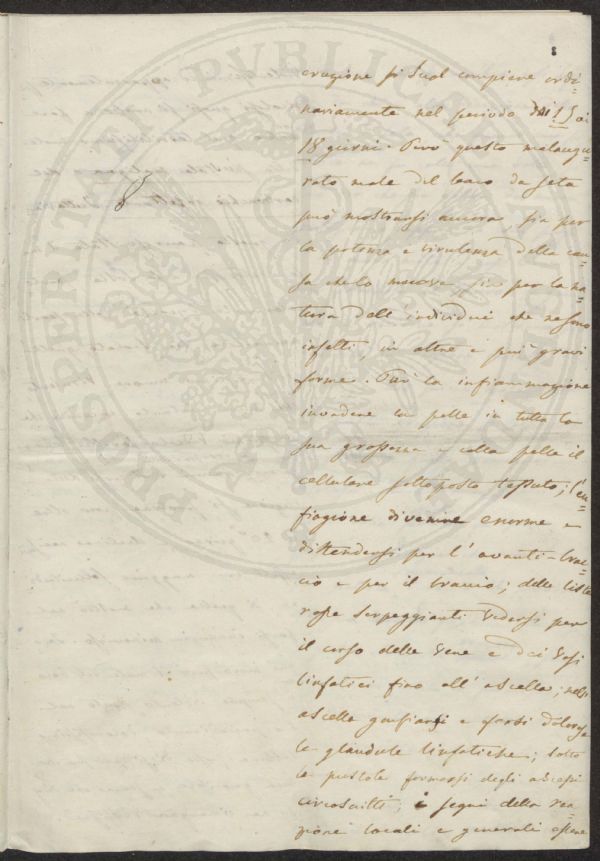 8
erazione si suol compiere ordi=
nariamente nel periodo dai 15 ai
18 giorni. Però questo malaugu=
rato male del baco da seta
può mostrarsi ancora, sia per
la potenza e virulenza della cau=
sa che lo muove, sia per la na=
tura dell'individui che ne sono
infetti, in altre e più gravi
forme. Può la infiammazione
invadere la pelle in tutta la
sua grossezza e colla pelle il
cellulare sottoposto tessuto; l'en=
fiagione divenire enorme e
distendersi per l'avanti-brac=
cio e per il braccio; delle liste
rosse serpeggianti vedersi per
il corso delle vene e dei vasi
linfatici fino all'ascella; nell'
ascella gonfiarsi e farsi dolorose
le glandule linfatiche; sotto
le pustole formarsi degli ascessi
circoscritti; i segni della rea=
zione locali e generali essere
PROSPERITATI PVBLICAE AVGENDAE